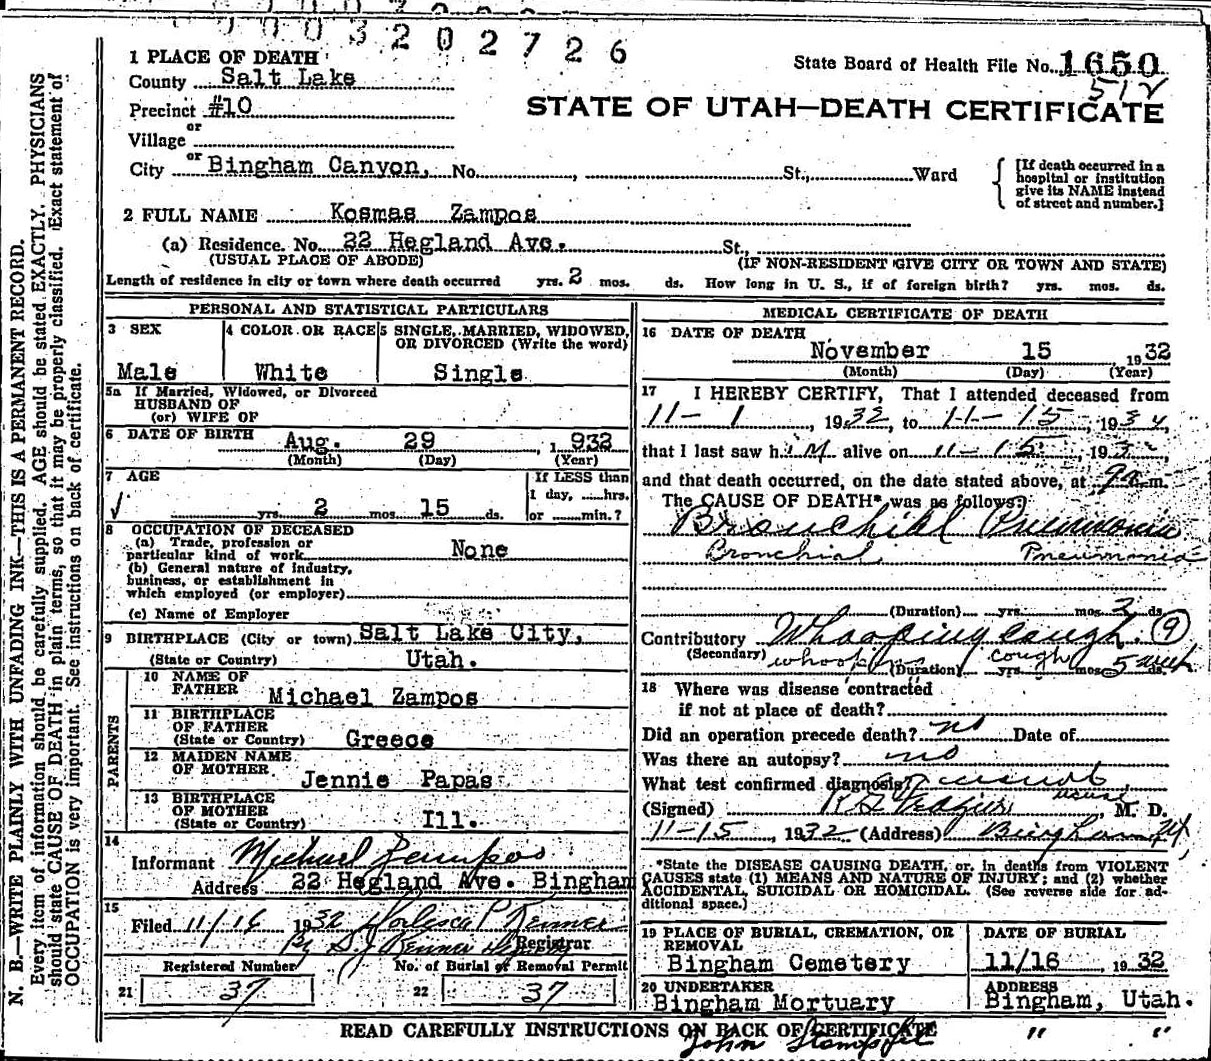 0003202726
1 PLACE OF DEATH
State Board of Health File No. 1650
512
County Salt Lake
STATE OF UTAH—DEATH CERTIFICATE
Precinct #10
or
Village
or
City Bingham Canyon, No. , St., Ward
[If death occurred in a
hospital or institution
give its NAME instead
of street and number.]
2 FULL NAME Kosmas Zampos
(a) Residence. No. 22 Hegland Ave. St.,
(USUAL PLACE OF ABODE) (IF NON-RESIDENT GIVE CITY OR TOWN AND STATE)
Length of residence in city or town where death occurred yrs. 2 mos. ds. How long in U. S., if of foreign birth? yrs. mos. ds.
PERSONAL AND STATISTICAL PARTICULARS
3 SEX
Male
4 COLOR OR RACE
White
5 SINGLE, MARRIED, WIDOWED,
OR DIVORCED (Write the word)
Single
5a If Married, Widowed, or Divorced
HUSBAND OF
(or) WIFE OF
6 DATE OF BIRTH Aug. 29 , 1932
(Month) (Day) (Year)
7 AGE
yrs. 2 mos. 15 ds.
If LESS than
1 day, ......hrs.
or ........min.?
8 OCCUPATION OF DECEASED
(a) Trade, profession or
particular kind of work None
(b) General nature of industry,
business, or establishment in
which employed (or employer)
(c) Name of Employer
9 BIRTHPLACE (City or town) Salt Lake City,
(State or Country) Utah.
PARENTS
10 NAME OF
FATHER Michael Zampos
11 BIRTHPLACE
OF FATHER
(State or Country) Greece
12 MAIDEN NAME
OF MOTHER Jennie Papas
13 BIRTHPLACE
OF MOTHER
(State or Country) Ill.
14
Informant Michael Zampos
Address 22 Hegland Ave. Bingham
15
Filed 11/16 1932 P. Renner
By S. J. Renner Registrar
Registered Number No. of Burial or Removal Permit
21 37 22 37
MEDICAL CERTIFICATE OF DEATH
16 DATE OF DEATH
November 15 1932
(Month) (Day) (Year)
17 I HEREBY CERTIFY, That I attended deceased from
11-1, 1932, to 11-15, 193
that I last saw h im alive on 11-15, 193
and that death occurred, on the date stated above, at 9 a.m.
The CAUSE OF DEATH* was as follows:
Bronchial Pneumonia
Bronchial Pneumonia
(Duration) yrs. mos. 3 ds.
Contributory Whooping cough. 9
(Secondary) whooping cough
(Duration) yrs. mos. 5 week ds.
18 Where was disease contracted
if not at place of death?
Did an operation precede death? no Date of
Was there an autopsy? no
What test confirmed diagnosis? usual
usual
(Signed) M. D.
11-15, 1932 (Address) Bingham
*State the DISEASE CAUSING DEATH, or, in deaths from VIOLENT
CAUSES state (1) MEANS AND NATURE OF INJURY; and (2) whether
ACCIDENTAL, SUICIDAL OR HOMICIDAL. (See reverse side for ad-
ditional space.)
19 PLACE OF BURIAL, CREMATION, OR
REMOVAL
Bingham Cemetery
DATE OF BURIAL
11/16 1932
20 UNDERTAKER
Bingham Mortuary
ADDRESS
Bingham, Utah.
READ CAREFULLY INSTRUCTIONS ON BACK OF CERTIFICATE
John Stampfel " "
N. B.—WRITE PLAINLY WITH UNFADING INK—THIS IS A PERMANENT RECORD.
Every item of information should be carefully supplied. AGE should be stated EXACTLY. PHYSICIANS
should state CAUSE OF DEATH in plain terms, so that it may be properly classified. Exact statement of
OCCUPATION is very important. See instructions on back of certificate.